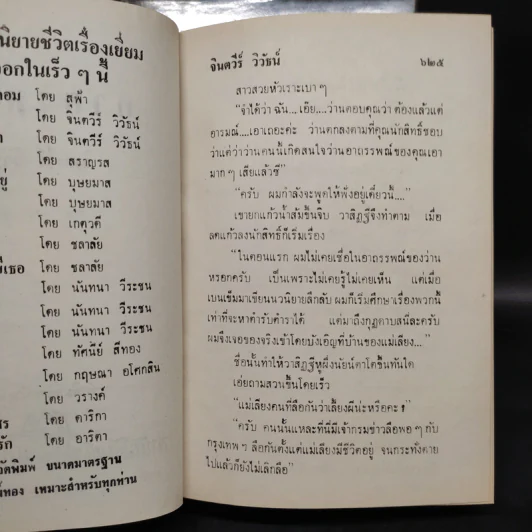 นิยายชีวิตเรื่องเยี่ยม
ออกในเร็ว ๆ นี้
โดย สุฟ้า
โดย จินตวีร์ วิวัธน์
โดย จินตวีร์ วิวัธน์
โดย สราญรส
โดย บุษยมาส
โดย บุษยมาส
โดย เกตุวดี
โดย ชลาลัย
โดย ชลาลัย
โดย นันทนา วีระชน
โดย นันทนา วีระชน
โดย นันทนา วีระชน
โดย ทัศนีย์ สีทอง
โดย กฤษณา อโศกสิน
โดย วรางค์
โดย ดาริกา
โดย อาริตา
จัดพิมพ์ ขนาดมาตรฐาน
เหมาะสำหรับทุกท่าน
จินตวีร์ วิวัธน์ ๖๒๕
สาวสวยหัวเราะเบา ๆ
“จำได้ว่า ฉัน...เอ๊ย....ว่านตอบคุณว่า ต้องแล้วแต่
อารมณ์....เอาเถอะค่ะ ว่านตกลงตามที่คุณนักสิทธิ์ชอบ
ว่าแต่ว่าว่านคนนี้เกิดสนใจว่านอาถรรพณ์ของคุณเอา
มาก ๆ เสียแล้วซี”
“ครับ ผมกำลังจะพูดให้ฟังอยู่เดี๋ยวนี้....”
เขายกแก้วน้ำส้มขึ้นจิบ วาสิฏฐีจึงทำตาม เมื่อ
ลดแก้วลงนักสิทธิ์ก็เริ่มเรื่อง
“ในตอนแรก ผมไม่เคยเชื่อในอาถรรพณ์ของว่าน
หรอกครับ เป็นเพราะไม่เคยรู้ไม่เคยเห็น แต่เมื่อ
เบนเข็มมาเขียนนวนิยายลึกลับ ผมก็เริ่มศึกษาเรื่องพวกนี้
เท่าที่จะหาตำรับตำราได้ แต่มาถึงกุฎดาบสนี่ละครับ
ผมจึงเจอของจริงเข้าโดยบังเอิญที่บ้านของแม่เลียง...”
ชื่อนั้นทำให้วาสิฏฐีหูผึ่งนัยน์ตาโตขึ้นทันใด
เอ่ยถามสวนขึ้นโดยเร็ว
“แม่เลียงคนที่ลือกันว่าเลี้ยงผีน่ะหรือคะ ?
“ครับ คนนั้นแหละที่นี่มีเจ้ากรมข่าวลือพอ ๆ กับ
กรุงเทพ ฯ ลือกันตั้งแต่แม่เลียงมีชีวิตอยู่ จนกระทั่งตาย
ไปแล้วก็ยังไม่เลิกลือ”